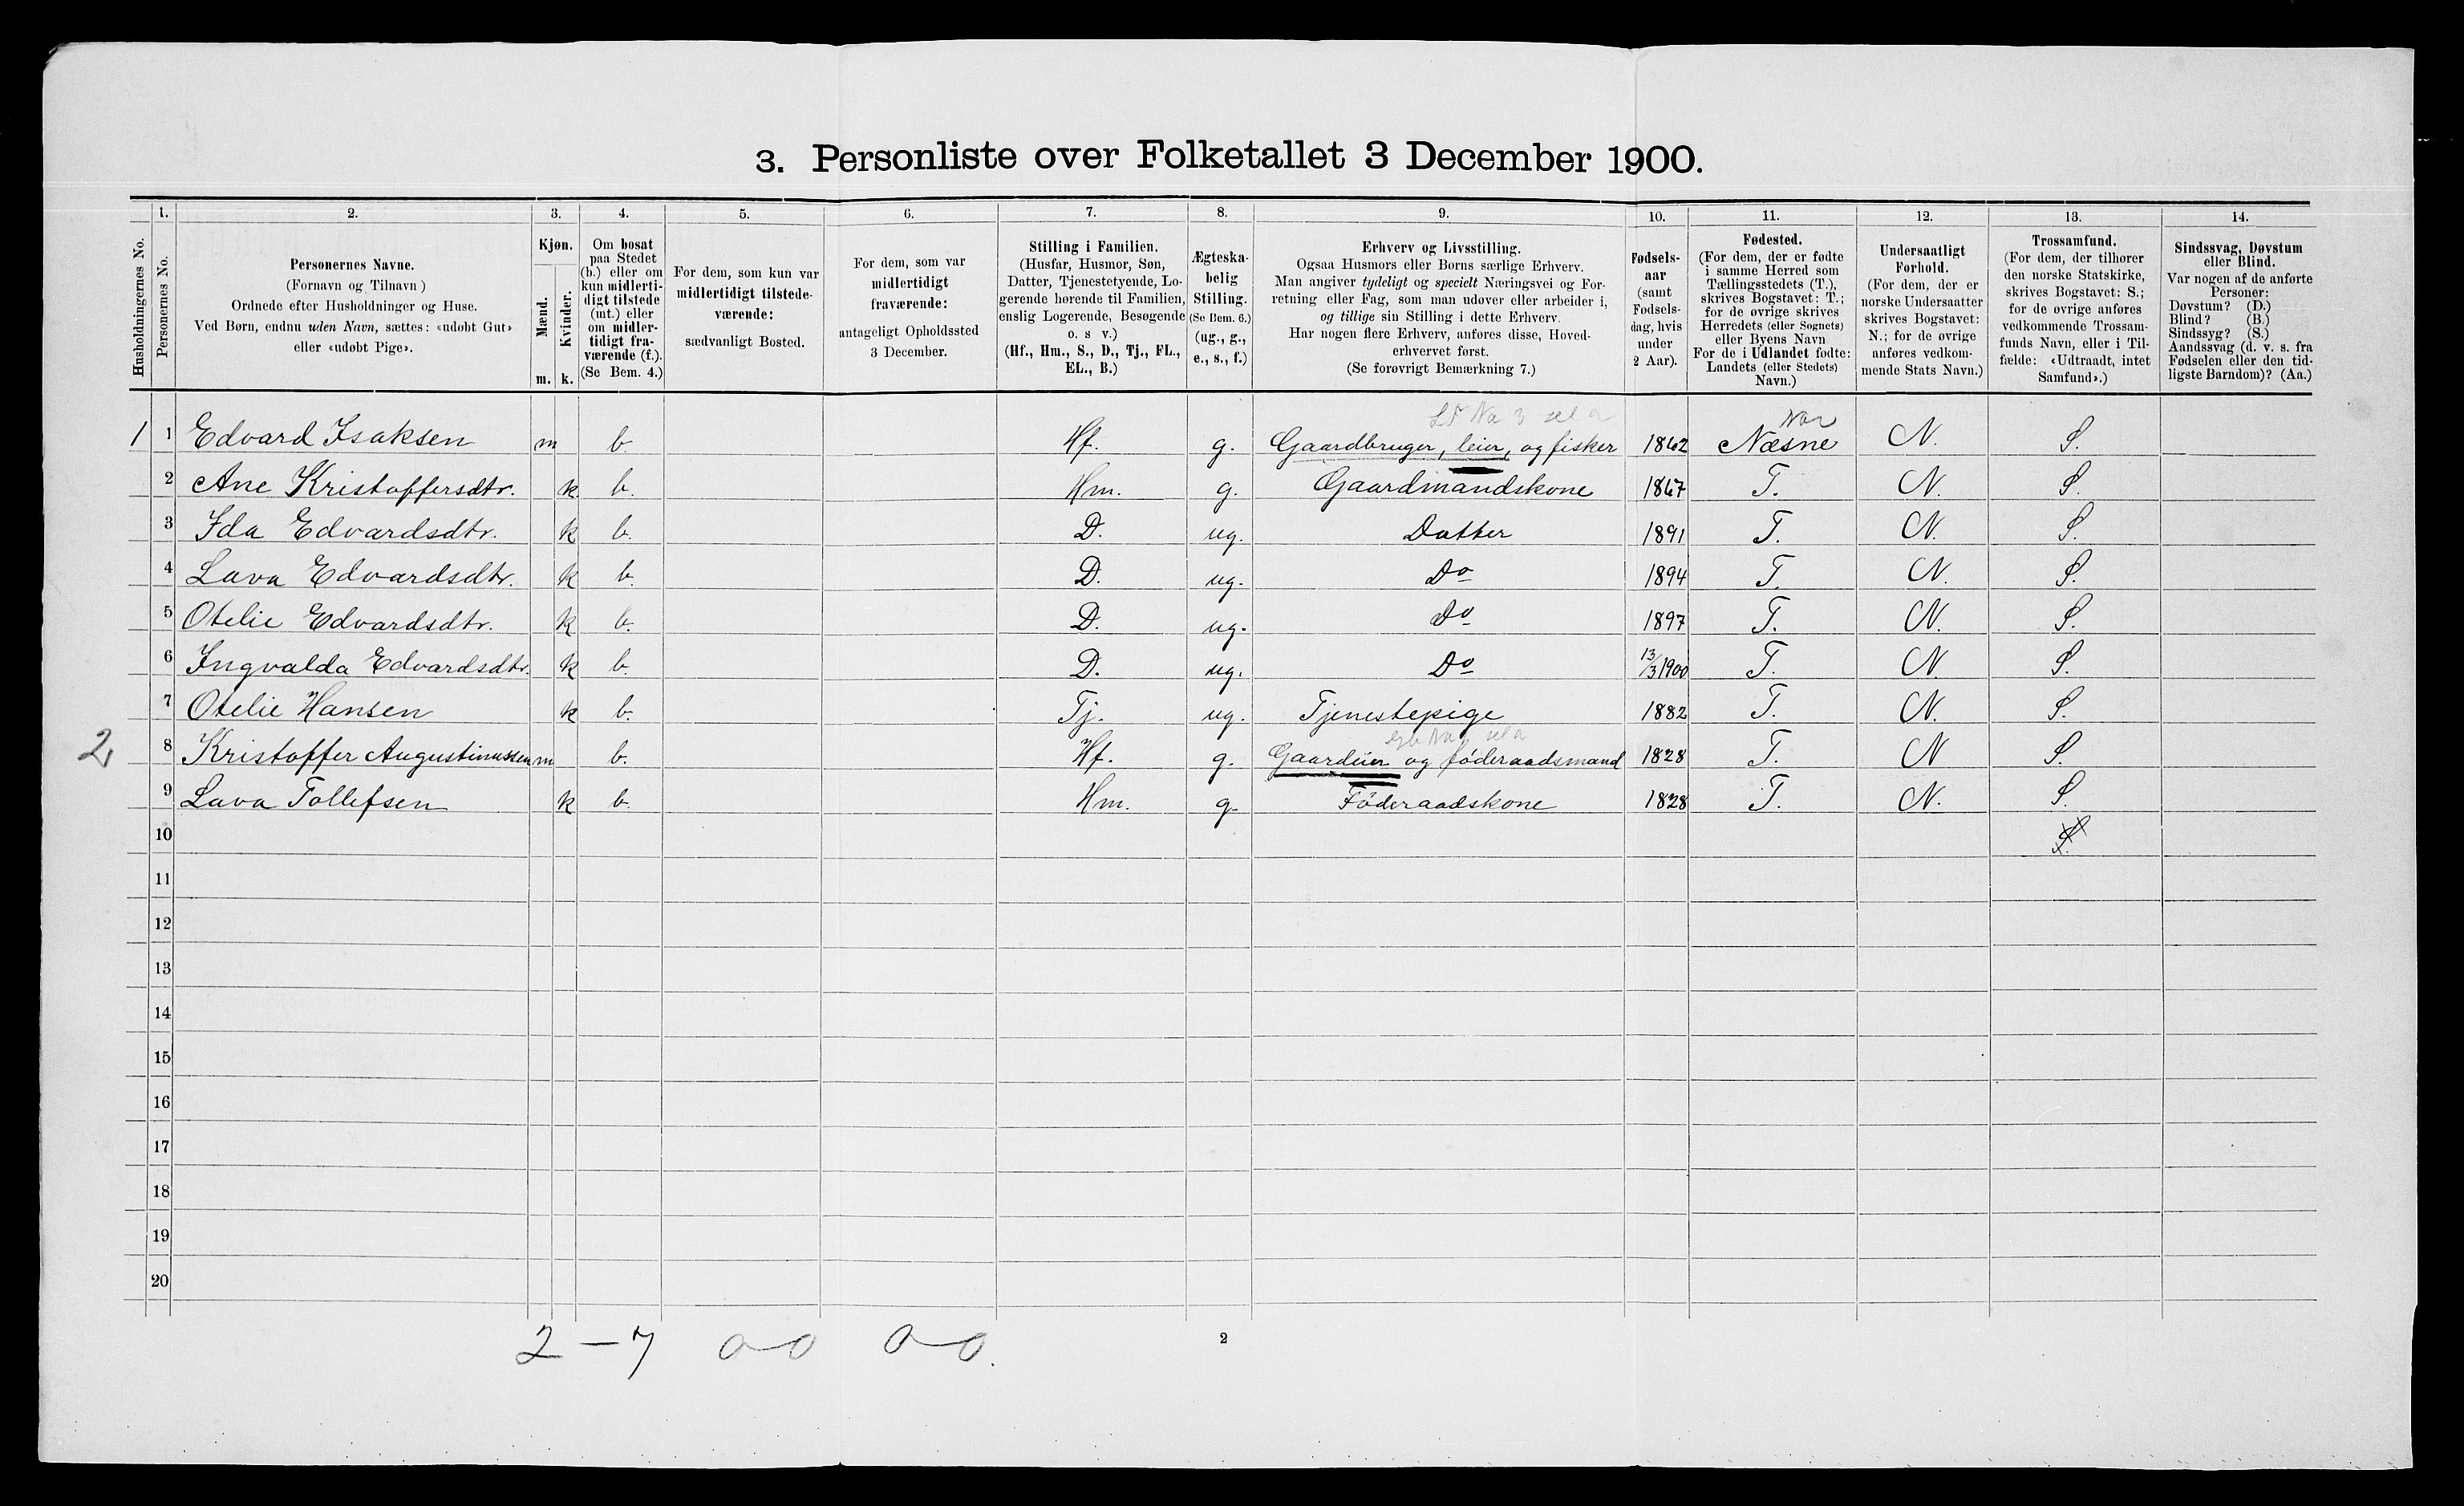 3. Personliste over Folketallet 3 December 1900.
1. 2. 3. 4. 5. 6. 7. 8. 9. 10. 11. 12. 13. 14.
Husholdningernes No.
Personernes No.
Personernes Navne.
(Fornavn og Tilnavn)
Ordnede efter Husholdninger og Huse.
Ved Børn, endnu uden Navn, sættes: «udøbt Gut»
eller «udøbt Pige».
Kjøn.
Mænd.
Kvinder.
m. k.
Om bosat
paa Stedet
(b.) eller om
kun midlerti-
digt tilstede
(mt.) eller
om midler-
tidigt fra-
værende (f.).
(Se Bem. 4.)
For dem, som kun var
midlertidigt tilstede-
værende:
sædvanligt Bosted.
For dem, som var
midlertidigt
fraværende:
antageligt Opholdssted
3 December.
Stilling i Familien.
(Husfar, Husmor, Søn,
Datter, Tjenestetyende, Lo-
gerende hørende til Familien,
enslig Logerende, Besøgende
o. s v.)
(Hf., Hm., S., D., Tj., FL.,
EL., B.)
Ægteska-
belig
Stilling.
(Se Bem. 6.)
(ug., g.,
e., s., f.)
Erhverv og Livsstilling.
Ogsaa Husmors eller Børns særlige Erhverv.
Man angiver tydeligt og specielt Næringsvei og For-
retning eller Fag, som man udøver eller arbeider i,
og tillige sin Stilling i dette Erhverv.
Har nogen flere Erhverv, anføres disse, Hoved-
erhvervet først.
(Se forøvrigt Bemærkning 7.)
Fødsels-
aar
(samt
Fødsels-
dag, hvis
under
2 Aar).
Fødested.
(For dem, der er fødte
i samme Herred som
Tællingsstedets (T.),
skrives Bogstavet: T.;
for de øvrige skrives
Herredets (eller Sognets)
eller Byens Navn
For de i Udlandet fødte:
Landets (eller Stedets)
Navn.)
Undersaatligt
Forhold.
(For dem, der er
norske Undersaatter
skrives Bogstavet:
N.; for de øvrige
anføres vedkom-
mende Stats Navn.)
Trossamfund.
(For dem, der tilhører
den norske Statskirke,
skrives Bogstavet: S.;
for de øvrige anføres
vedkommende Trossam-
funds Navn, eller i Til-
fælde: «Udtraadt, intet
Samfund».)
Sindssvag, Døvstum
eller Blind.
Var nogen af de anførte
Personer:
Døvstum? (D.)
Blind? (B.)
Sindssyg? (S.)
Aandssvag (d. v. s. fra
Fødselen eller den tid-
ligste Barndom)? (Aa.)
1 1 Edvard Isaksen m b. Hf. g. Gaardbruger, leier, og fisker 1862 Næsne N. S.
2 Ane Kristoffersdtr. k. b. Hm. g. Gaardmandskone 1867 T. N. S.
3 Ida Edvardsdtr. k b. D. ug. Datter 1891 T. N. S.
4 Lava Edvardsdtr. k b. D. ug. Do 1894 T. N. S.
5 Otelie Edvardsdtr. k b. D. ug. Do 1897 T. N. S.
6 Ingvalda Edvardsdtr. k b. D. ug. Do 13/3 1900 T. N. S.
7 Otelie Hansen k b. Tj. ug. Tjenestepige 1882 T. N. S.
2, 8 Kristoffer Augustinussen m b. Hf. g. Gaardeier og föderaadsmand 1828 T. N S.
9 Lava Tollefsen k b. Hm. g. Föderaadskone 1828 T. N. S.
10 S.
11
12
13
14
15
16
17
18
19
20
2 – 7 0–0 0–0.
2